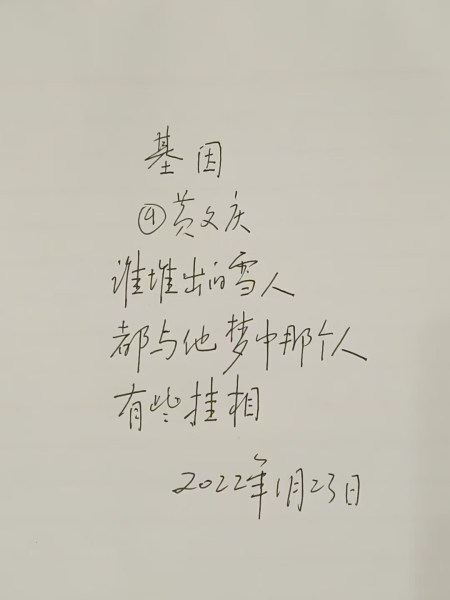 基因
④黄文庆
谁堆出的雪人
都与他梦中那个人
有些挂相
2022年1月23日